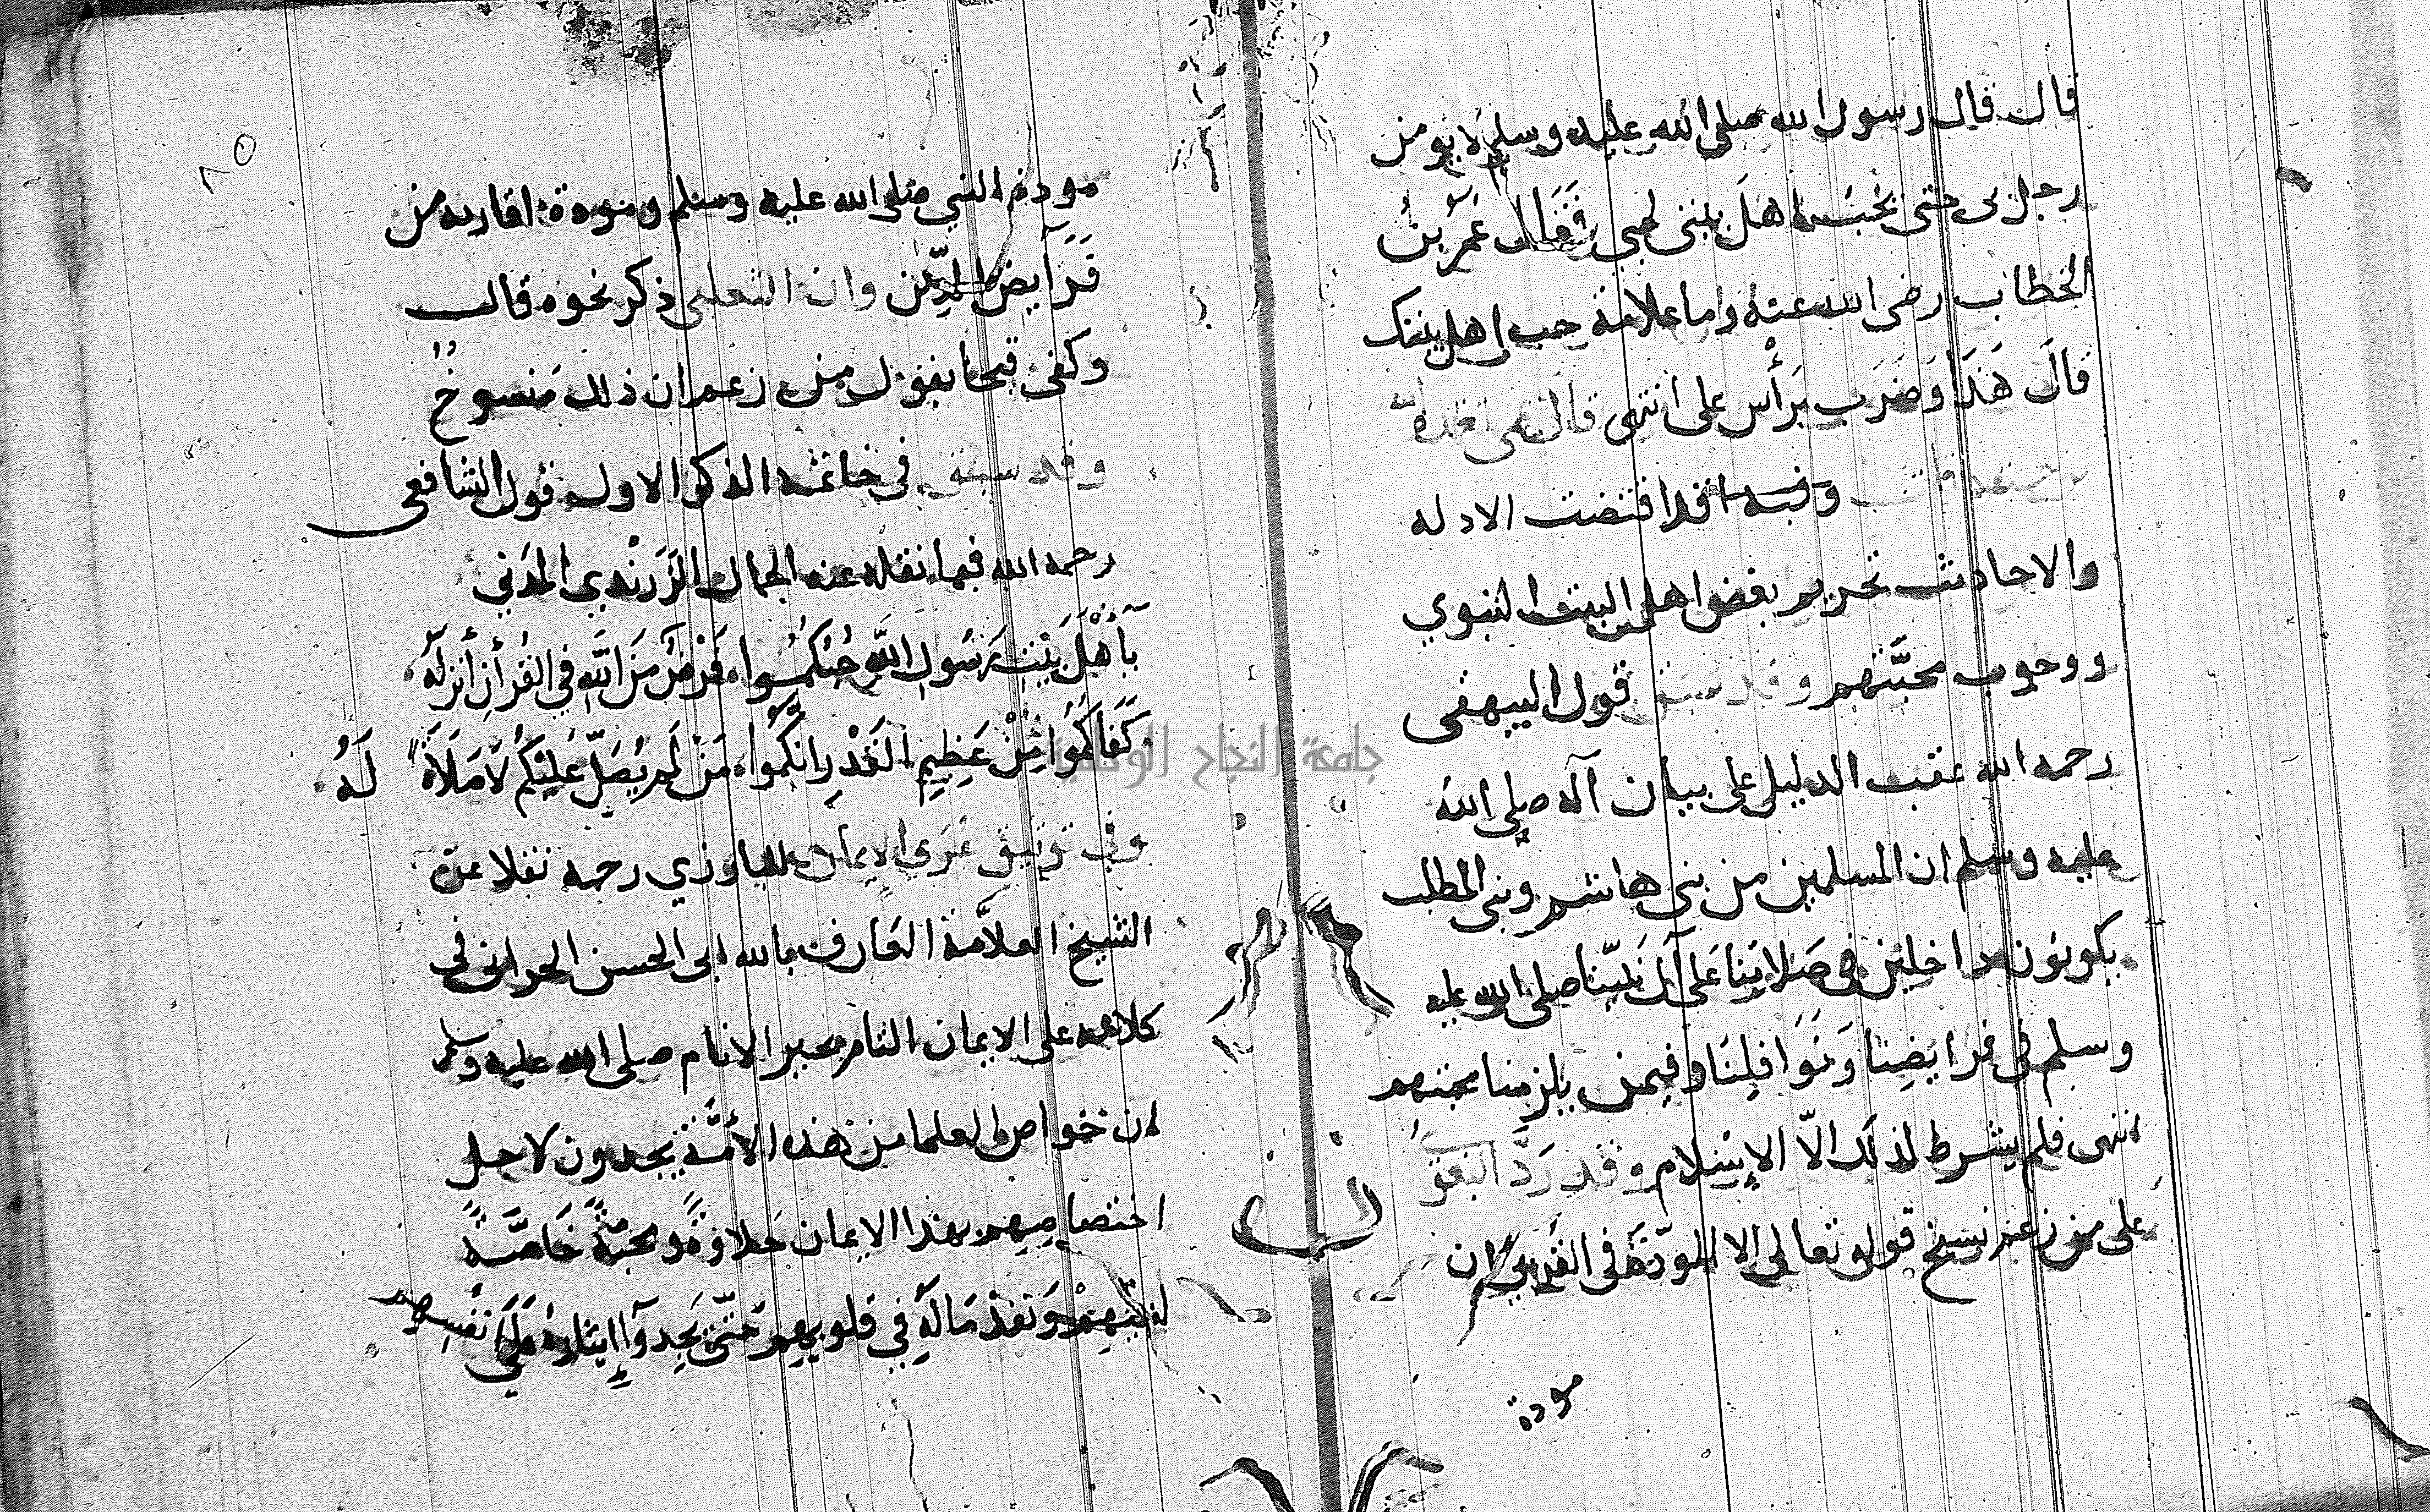 قال قال رسول الله صلى الله عليه وسلم لا يومن
رجل حتى يحب اهل بيتي لحبي فَقَالَ عُمَرُ بنُ
الخطاب رضى الله عنه وما علامة حب اهل بيتك
قالَ هَذَا وَضَرَبَ برَأْس على انتهى قال
وفيه اقد اقتضت الادله
والاحاديث تحريم بغض اهل البيت النبوي
ووجوب محبَّتهم وقد سبق قول البيهقى
رحمه الله عقب الدليل على بيان آله صلى الله
عليه وسلم ان المسلمين من بنى هاشم وبنى المطلب
يكونون داخلين في صَلاتِنا عَلى آل نبيّنا صلى الله عليه
وسلم في فرايضِنا وَنَوَافِلِنَا وفيمن يلزمنا محبتهم
انتهى فلم يشرط لذلك الّا الإِسْلام وقد رَدَّ البَغَوِي
عَلى من زعم نسخ قوله تعالى الا المودّةَ في القُربى ان
مودة
٦٥
مودة النبي صلى الله عليه وسلم ومودة اقاربه من
فَرَايض الدِّين وان الثعلبى ذكر نحوه قال
وكفى قبحا بقول من زعم ان ذلك مَنسوخٌ
وقد سبق في خاتمة الذكر الاول قول الشافعى
رحمه الله فيما نقله عنه الجمال الزَرَنْدي المدَني
يا أهْلَ بَيْتِ رَسُولِ اللَّهِ حُبُّكُمُوا فَرْضٌ مِنَ اللَّهِ في القُرْأنِ أنزلَه
كَفَاكُمُوا مِنْ عَظِيمِ القَدْرِ انَّكُمُوا مَنْ لَم يُصَلِّ عَلَيْكُم لا صَلَاةَ لَهُ
وفى توثيق عُرَى الإيمان للبارزي رحمه نقلا عن
الشيخ العلاَّمة العَارف بالله ابى الحسن الحرانى فى
كلامه على الايمان التام بخير الانام صلى الله عليه وسلم
ان خواص العلما من هذه الأمَّة يجدون لاجل
اختصاصِهِم بهذا الايمان حَلاوَةً ومحبّةً خَاصَّةً
لنبيّهِمْ وَتقدّمَا لَهُ في قلوبِهِم حَتّى يَجِدوا إيثَارهُ عَلَى انفسِهِم
جامعة النجاح الوطنية